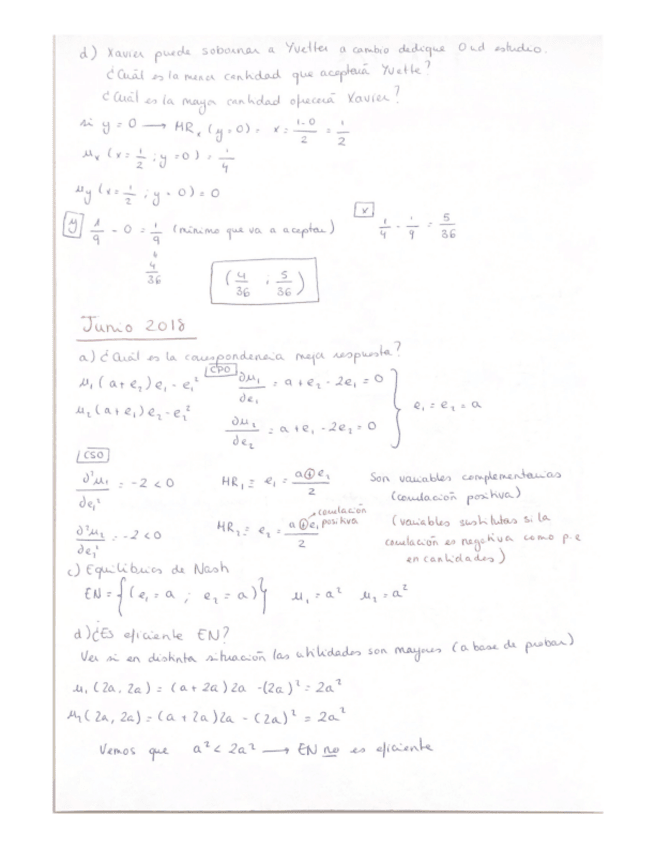 d) Xavier puede sobornar a Yvette a cambio dedique 0 ud estudio.
¿Cuál es la menor cantidad que aceptará Yvette?
¿Cuál es la mayor cantidad ofrecerá Xavier?
si y = 0 → MRₓ (y=0) = x = (1-0)/2 = 1/2
μₓ (x = 1/2 ; y = 0) = 1/4
μy (x = 1/2 ; y = 0) = 0
y 1/9 - 0 = 1/9 (mínimo que va a aceptar) x 1/4 - 1/9 = 5/36
4/36
(4/36 ; 5/36)
Junio 2018
a) ¿Cuál es la correspondencia mejor respuesta?
μ₁ (a + e₂) e₁ - e₁² CPO ∂μ₁/∂e₁ = a + e₂ - 2e₁ = 0
μ₂ (a + e₁) e₂ - e₂² ∂μ₂/∂e₂ = a + e₁ - 2e₂ = 0 } e₁ = e₂ = a
CSO
∂²μ₁/∂e₁² = -2 < 0 MR₁ ≡ e₁ = (a ⊕ e₂)/2 Son variables complementarias
(correlación positiva)
∂²μ₂/∂e₂² = -2 < 0 MR₂ ≡ e₂ = (a ⊕ e₁)/2 → correlación positiva (variables sustitutas si la
correlación es negativa como p.e
en cantidades)
c) Equilibrios de Nash
EN = {(e₁ = a ; e₂ = a)} μ₁ = a² μ₂ = a²
d) ¿Es eficiente EN?
Ver si en distinta situación las utilidades son mayores (a base de probar)
μ₁ (2a, 2a) = (a + 2a) 2a - (2a)² = 2a²
μ₂ (2a, 2a) = (a + 2a) 2a - (2a)² = 2a²
Vemos que a² < 2a² → EN no es eficiente